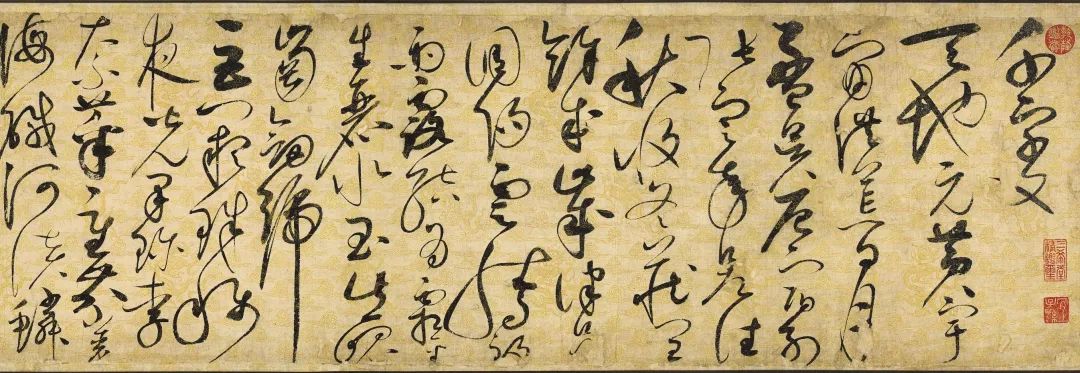 千字文
天地元黃宇
宙洪荒日月
盈昃辰宿列
張寒來暑往
秋收冬藏閏
餘成歲律呂
調陽雲騰致
雨露結為霜金
生麗水玉出崐
崗劍號
巨闕珠稱
夜光果珍李
柰菜重芥薑
海鹹河淡鱗